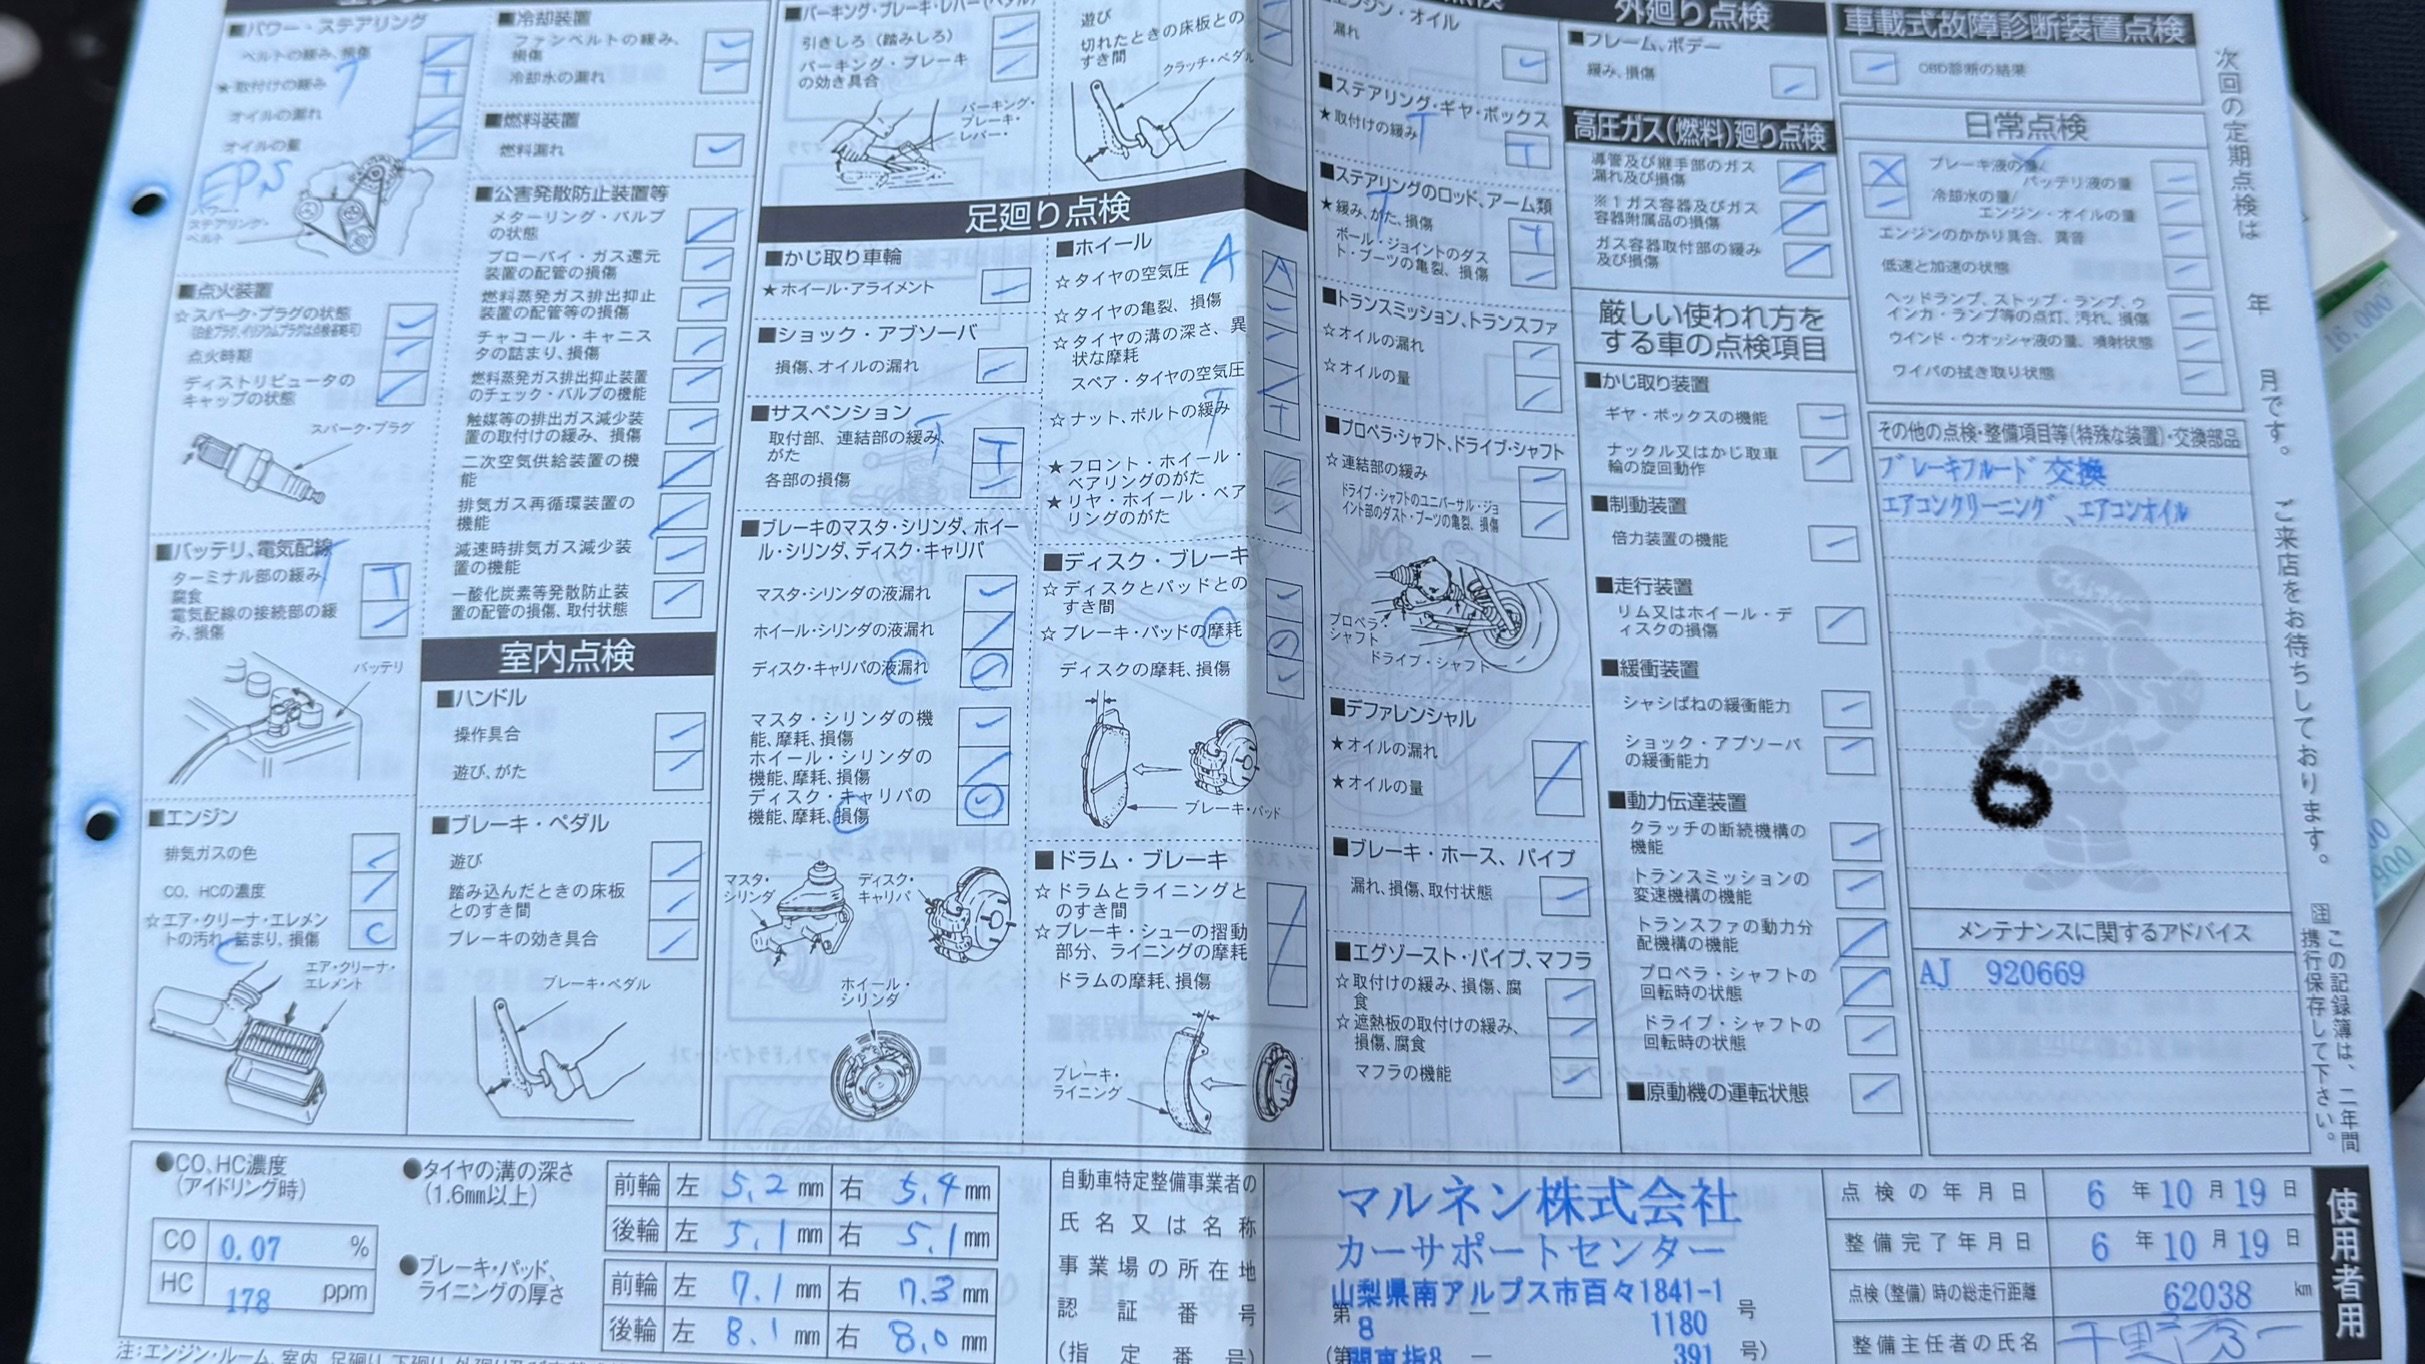 ■パワー・ステアリング
ベルトの緩み、損傷
★取付けの緩み
T
T
オイルの漏れ
オイルの量
EPS
パワー・
ステアリング・
ベルト
■点火装置
☆スパーク・プラグの状態
点火時期
ディストリビュータの
キャップの状態
スパーク・プラグ
■バッテリ、電気配線
ターミナル部の緩み、
腐食
T
電気配線の接続部の緩
み、損傷
バッテリ
■エンジン
排気ガスの色
CO、HCの濃度
☆エア・クリーナ・エレメン
トの汚れ、詰まり、損傷
C
エア・クリーナ・
エレメント
■冷却装置
ファンベルトの緩み、
損傷
冷却水の漏れ
■燃料装置
燃料漏れ
■公害発散防止装置等
メターリング・バルブ
の状態
ブローバイ・ガス還元
装置の配管の損傷
燃料蒸発ガス排出抑止
装置の配管等の損傷
チャコール・キャニス
タの詰まり、損傷
燃料蒸発ガス排出抑止装置
のチェック・バルブの機能
触媒等の排出ガス減少装
置の取付けの緩み、損傷
二次空気供給装置の機
能
排気ガス再循環装置の
機能
減速時排気ガス減少装
置の機能
一酸化炭素等発散防止装
置の配管の損傷、取付状態
室内点検
■ハンドル
操作具合
遊び、がた
■ブレーキ・ペダル
遊び
踏み込んだときの床板
とのすき間
ブレーキの効き具合
ブレーキ・ペダル
■パーキング・ブレーキ・レバー(ペダル)
引きしろ(踏みしろ)
パーキング・ブレーキ
の効き具合
パーキング・
ブレーキ・
レバー・
遊び
切れたときの床板との
すき間
クラッチ・ペダル
足廻り点検
■かじ取り車輪
★ホイール・アライメント
■ショック・アブソーバ
損傷、オイルの漏れ
■サスペンション
取付部、連結部の緩み、
がた
T
T
各部の損傷
■ブレーキのマスタ・シリンダ、ホイー
ル・シリンダ、ディスク・キャリパ
マスタ・シリンダの液漏れ
ホイール・シリンダの液漏れ
ディスク・キャリパの液漏れ
マスタ・シリンダの機
能、摩耗、損傷
ホイール・シリンダの
機能、摩耗、損傷
ディスク・キャリパの
機能、摩耗、損傷
マスタ・
シリンダ
ディスク・
キャリパ
ホイール・
シリンダ
■ホイール
☆タイヤの空気圧
A
A
☆タイヤの亀裂、損傷
☆タイヤの溝の深さ、異
状な摩耗
スペア・タイヤの空気圧
☆ナット、ボルトの緩み
T
T
★フロント・ホイール・
ベアリングのがた
★リヤ・ホイール・ベア
リングのがた
■ディスク・ブレーキ
☆ディスクとパッドとの
すき間
☆ブレーキ・パッドの摩耗
ディスクの摩耗、損傷
ブレーキ・パッド
■ドラム・ブレーキ
☆ドラムとライニングと
のすき間
☆ブレーキ・シューの摺動
部分、ライニングの摩耗
ドラムの摩耗、損傷
ブレーキ・
ライニング
エンジン・オイル
漏れ
■ステアリング・ギヤ・ボックス
★取付けの緩み
T
T
■ステアリングのロッド、アーム類
★緩み、がた、損傷
T
T
ボール・ジョイントのダス
ト・ブーツの亀裂、損傷
■トランスミッション、トランスファ
☆オイルの漏れ
☆オイルの量
■プロペラ・シャフト、ドライブ・シャフト
☆連結部の緩み
ドライブ・シャフトのユニバーサル・ジョ
イント部のダスト・ブーツの亀裂、損傷
プロペラ・
シャフト
ドライブ・シャフト
■デファレンシャル
★オイルの漏れ
★オイルの量
■ブレーキ・ホース、パイプ
漏れ、損傷、取付状態
■エグゾースト・パイプ、マフラ
☆取付けの緩み、損傷、腐
食
☆遮熱板の取付けの緩み、
損傷、腐食
マフラの機能
外廻り点検
■フレーム、ボデー
緩み、損傷
高圧ガス(燃料)廻り点検
導管及び継手部のガス
漏れ及び損傷
※1ガス容器及びガス
容器附属品の損傷
ガス容器取付部の緩み
及び損傷
厳しい使われ方を
する車の点検項目
■かじ取り装置
ギヤ・ボックスの機能
ナックル又はかじ取車
輪の旋回動作
■制動装置
倍力装置の機能
■走行装置
リム又はホイール・デ
ィスクの損傷
■緩衝装置
シャシばねの緩衝能力
ショック・アブソーバ
の緩衝能力
■動力伝達装置
クラッチの断続機構の
機能
トランスミッションの
変速機構の機能
トランスファの動力分
配機構の機能
プロペラ・シャフトの
回転時の状態
ドライブ・シャフトの
回転時の状態
■原動機の運転状態
車載式故障診断装置点検
OBD診断の結果
日常点検
ブレーキ液の量/
バッテリ液の量
冷却水の量/
エンジン・オイルの量
エンジンのかかり具合、異音
低速と加速の状態
ヘッドランプ、ストップ・ランプ、ウ
インカ・ランプ等の点灯、汚れ、損傷
ウインド・ウオッシャ液の量、噴射状態
ワイパの拭き取り状態
その他の点検・整備項目等(特殊な装置)・交換部品
ブレーキフルード交換
エアコンクリーニング、エアコンオイル
6
メンテナンスに関するアドバイス
AJ 920669
次回の定期点検は 年 月です。ご来店をお待ちしております。
注 この記録簿は、二年間
携行保存して下さい。
●CO、HC濃度
(アイドリング時)
CO 0.07 %
HC 178 ppm
●タイヤの溝の深さ
(1.6mm以上)
前輪 左 5.2 mm 右 5.4 mm
後輪 左 5.1 mm 右 5.1 mm
●ブレーキ・パッド、
ライニングの厚さ
前輪 左 7.1 mm 右 7.3 mm
後輪 左 8.1 mm 右 8.0 mm
自動車特定整備事業者の
氏名又は名称
事業場の所在地
認証番号
(指定番号)
マルネン株式会社
カーサポートセンター
山梨県南アルプス市百々1841-1
第 8 ー 1180 号
(第 関東指8 ー 391 号)
点検の年月日 6 年 10 月 19 日
整備完了年月日 6 年 10 月 19 日
点検(整備)時の総走行距離 62038 km
整備主任者の氏名
使用者用